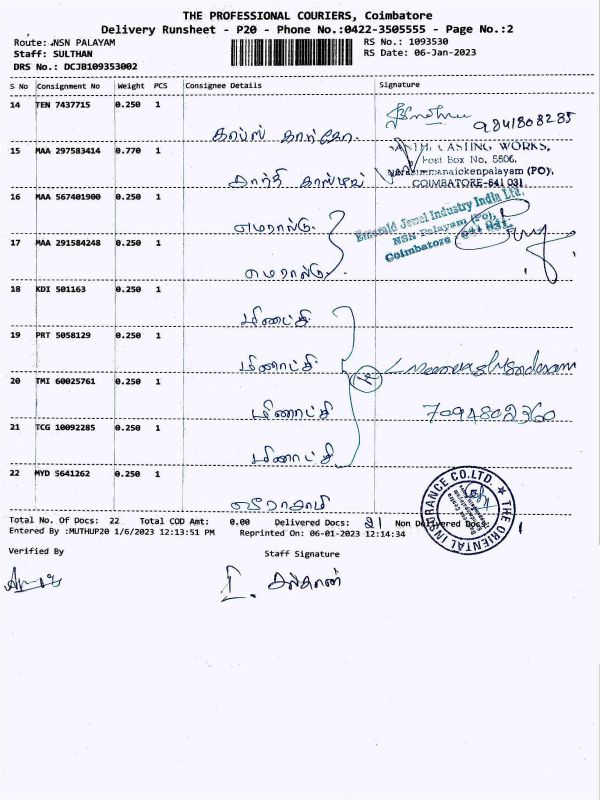 THE PROFESSIONAL COURIERS, Coimbatore
Delivery Runsheet - P20 - Phone No.:0422-3505555 - Page No.:2
Route: NSN PALAYAM
RS No.: 1093530
Staff: SULTHAN
RS Date: 06-Jan-2023
DRS No.: DCJB109353002
S No Consignment No Weight PCS Consignee Details Signature
14 TEN 7437715 0.250 1
9841808285
15 MAA 297583414 0.770 1
SANTHI CASTING WORKS,
Post Box No. 5606,
Narasimmanaickenpalayam (PO),
COIMBATORE-641 031.
16 MAA 567401900 0.250 1
எமரால்டு
Emerald Jewel Industry India Ltd.
NSN Palayam (PO),
Coimbatore 641 031.
17 MAA 291584248 0.250 1
எமரால்டு
18 KDI 501163 0.250 1
மீனாட்சி
19 PRT 5058129 0.250 1
மீனாட்சி
20 TMI 60025761 0.250 1
மீனாட்சி
7094802360
21 TCG 10092285 0.250 1
மீனாட்சி
22 MYD 5641262 0.250 1
THE ORIENTAL INSURANCE CO.LTD.
Total No. Of Docs: 22 Total COD Amt: 0.00 Delivered Docs: 21 Non Delivered Docs: 1
Entered By :MUTHUP20 1/6/2023 12:13:51 PM Reprinted On: 06-01-2023 12:14:34
Verified By
Staff Signature
சுல்தான்